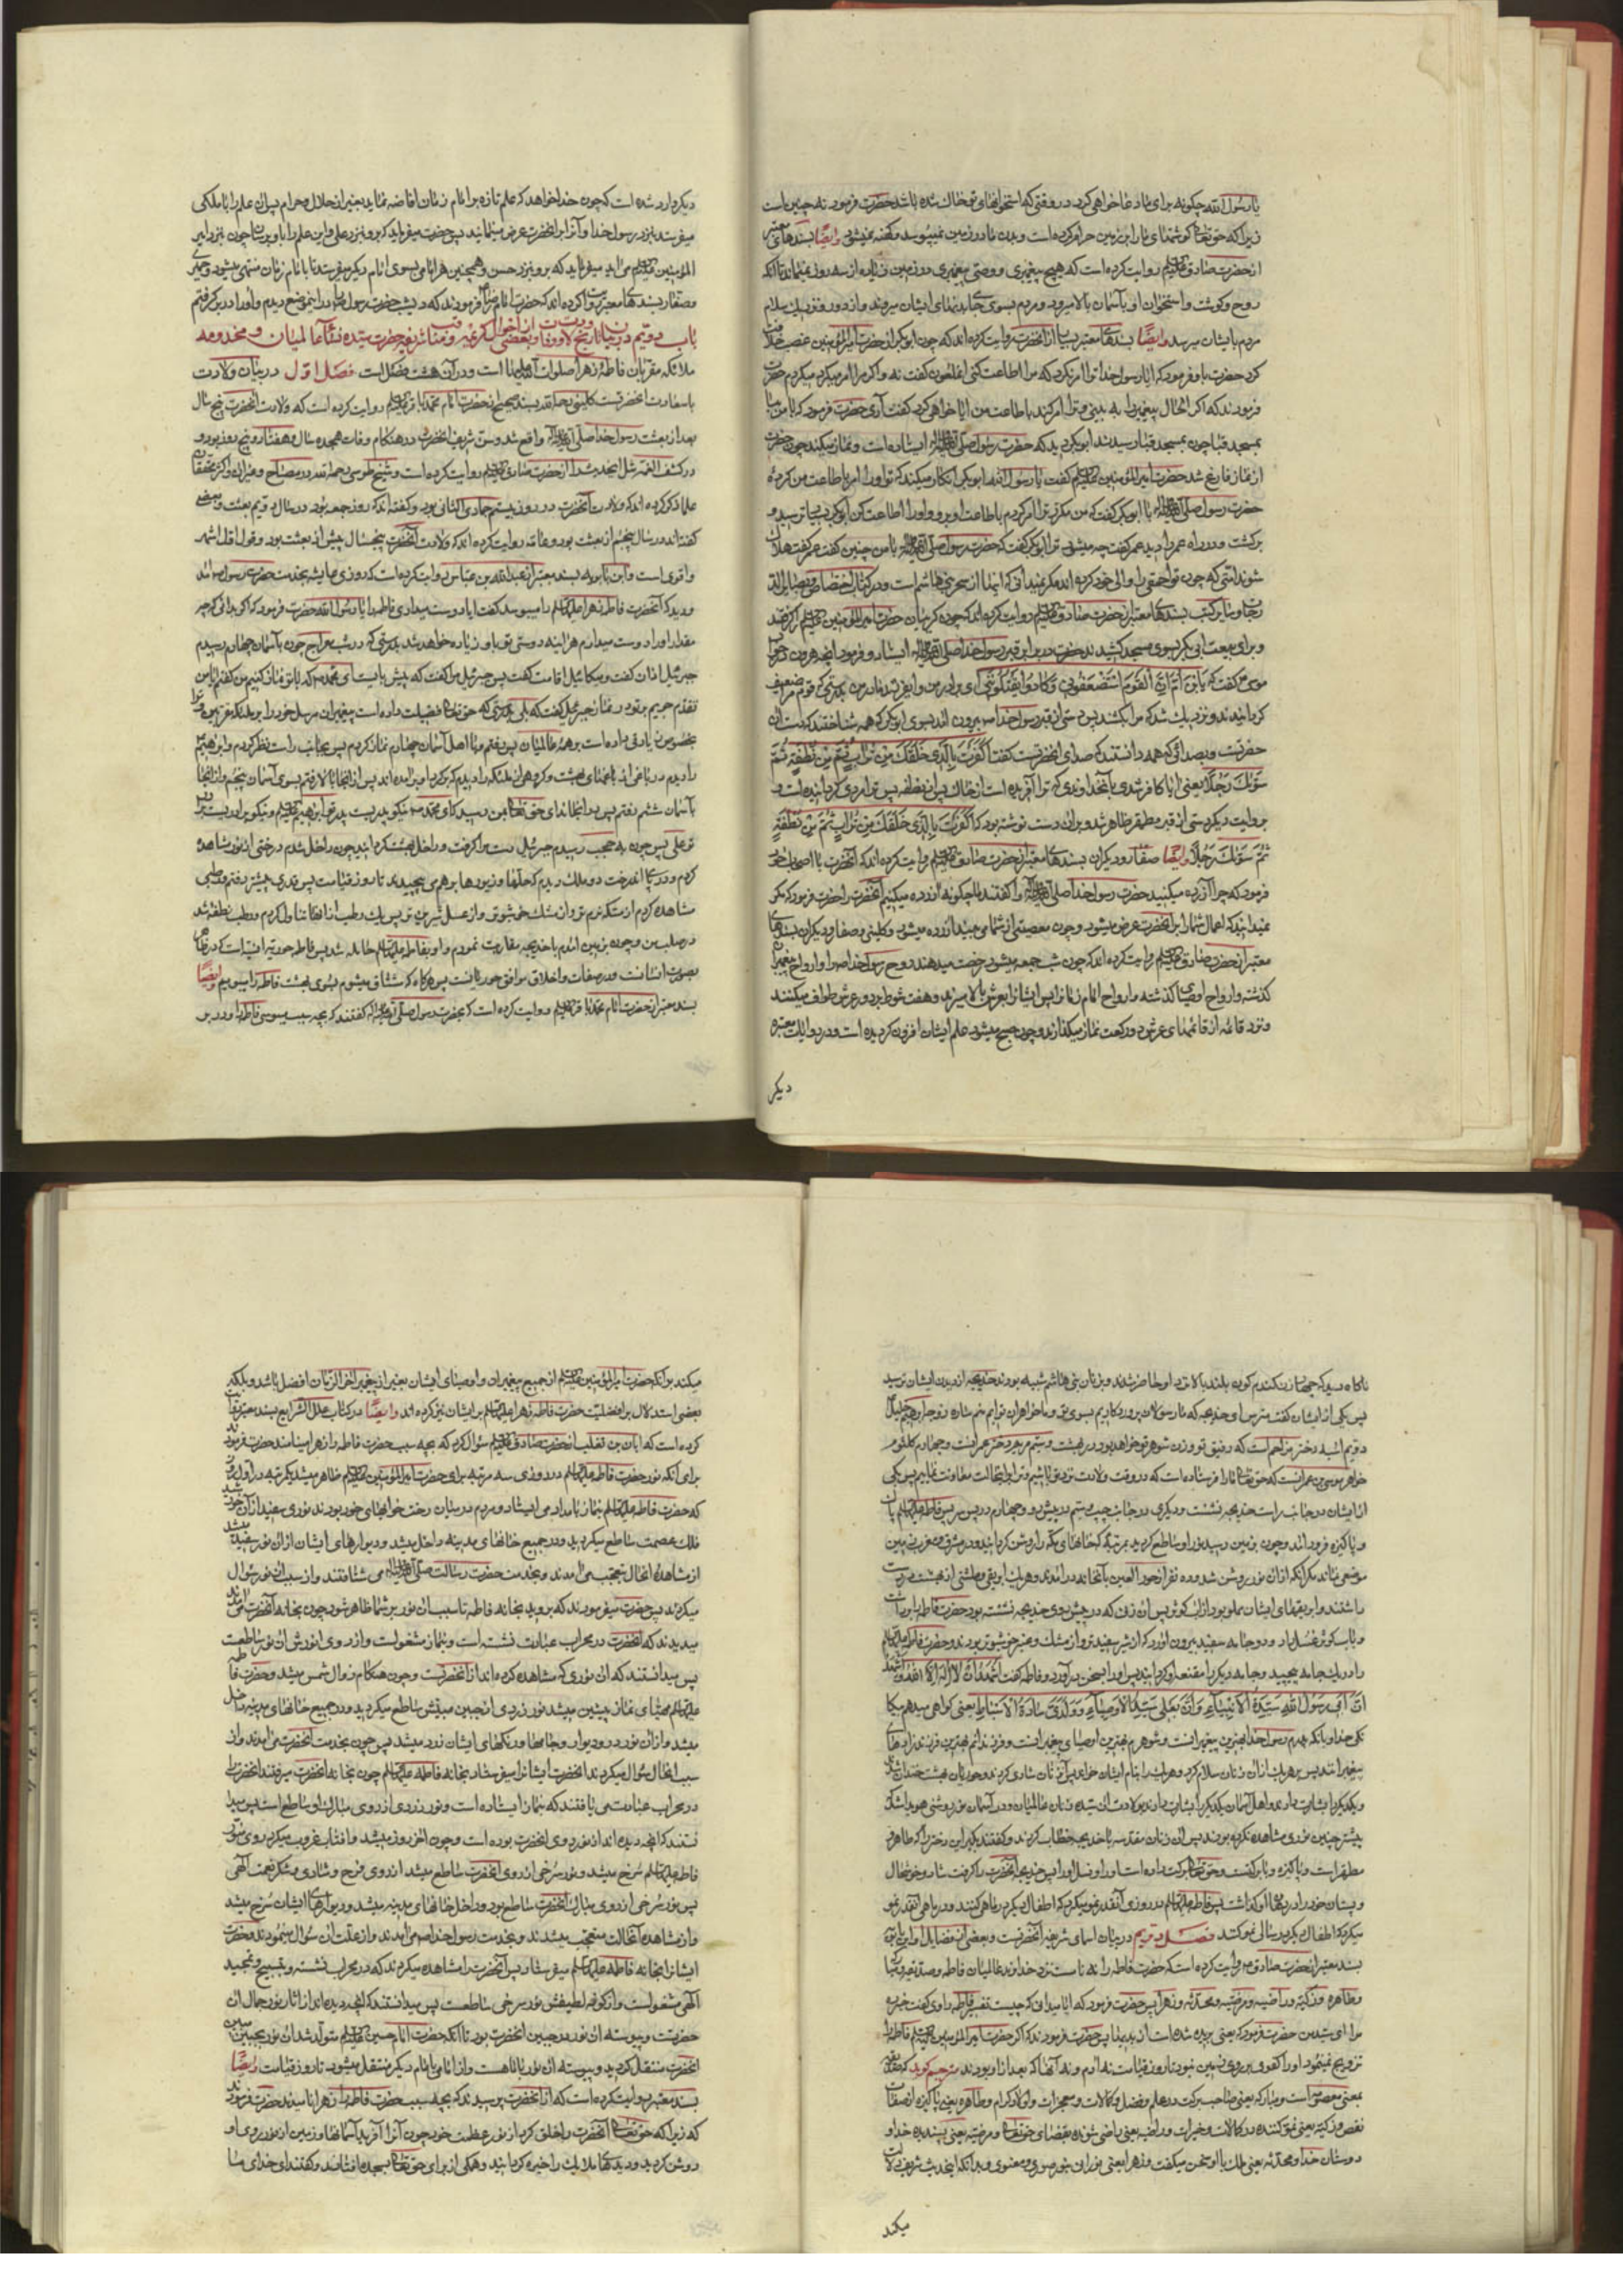 یا رسول الله چگونه برای ما دعا خواهی کرد در وقتی که استخوانهای تو خاک شده باشد حضرت فرمود نه چنین است
زیرا که حق تعالی گوشتهای ما را بر زمین حرام کرده است و بدن ما در زمین نمیپوسد و کهنه نمیشود وایضًا بسندهای معتبر
از حضرت صادق علیه السلام روایت کرده است که هیچ پیغمبری و وصی پیغمبری در زمین زیاده از سه روز نمیماند تا آنکه
روح و گوشت و استخوان او بآسمان بالا میرود و مردم بسوی جای بدنهای ایشان میروند و از دور و نزدیک سلام
مردم بایشان میرسد وایضًا بسندهای معتبر بسیار از آنحضرت روایت کرده اند که چون ابوبکر از حضرت امیرالمؤمنین غصب خلافت
کرد حضرت باو فرمود که ایا رسول خدا ترا امر نکرد که مرا اطاعت کنی آنملعون گفت نه و اگر مرا امر میکرد میکردم حضرت
فرمودند که اگر الحال پیغمبر را به بینی و ترا امر کند باطاعت من ایا خواهی کرد گفت آری حضرت فرمود که با من بیا
بمسجد قبا چون بمسجد قبا رسیدند ابوبکر دید که حضرت رسول صلی الله علیه وآله ایستاده است و نماز میکند چون حضرت
از نماز فارغ شد حضرت امیرالمؤمنین علیه السلام گفت یا رسول الله ابوبکر انکار میکند که تو او را امر باطاعت من کرده
حضرت رسول صلی الله علیه وآله با ابوبکر گفت که من مکرر ترا امر کردم باطاعت او برو و او را اطاعت کن ابوبکر بسیار ترسید و
برگشت و در راه عمر را دید عمر گفت چه میشود ترا ابوبکر گفت که حضرت رسول صلی الله علیه وآله با من چنین گفت عمر گفت هلاک
شوند امتی که چون تو احمقی را والی خود کرده اند مگر نمیدانی که اینها از سحر بنی هاشم است و در کتاب اختصاص و بصایر الد
رجات و سایر کتب بسندهای معتبر از حضرت صادق علیه السلام روایت کرده اند که چون گریبان حضرت امیرالمؤمنین علیه السلام را گرفتند
و برای بیعت ابی بکر بسوی مسجد کشیدند حضرت در برابر قبر رسول خدا صلی الله علیه وآله ایستاد و فرمود آنچه هرون در جواب
موسی گفت که یَا بْنَ اُمَّ اِنَّ الْقَوْمَ اسْتَضْعَفُونِی وَکَادُوا یَقْتُلُونَنِی ای برادر من و ایفرزند مادر من بدرستی که قوم مرا ضعیف
گردانیدند و نزدیک شد که مرا بکشند پس دستی از قبر رسول خدا ص بیرون آمد بسوی ابوبکر که همه شناختند که دست آن
حضرتست و بصدائی که همه دانستند که صدای آنحضرتست گفت اَکَفَرْتَ بِالَّذِی خَلَقَکَ مِنْ تُرابٍ ثُمَّ مِنْ نُطْفَةٍ ثُمَّ
سَوّٰیکَ رَجُلًا یعنی ایا کافر شدی بآنخداوندی که ترا آفریده است از خاک پس از نطفه پس ترا مردی گردانیده است و
بروایت دیگر دستی از قبر مطهر ظاهر شد و بر آن دست نوشته بود که اَکَفَرْتَ بِالَّذِی خَلَقَکَ مِنْ تُرابٍ ثُمَّ مِنْ نُطْفَةٍ
ثُمَّ سَوّٰیکَ رَجُلًا وایضًا صفار و دیگران بسندهای معتبر از حضرت صادق علیه السلام روایت کرده اند که آنحضرت با اصحاب خود
فرمود که چرا آزرده میکنید حضرت رسول خدا صلی الله علیه وآله را گفتند ما چگونه آزرده میکنیم آنحضرت را حضرت فرمود که مگر
نمیدانید که اعمال شما را بر آنحضرت عرض میشود و چون معصیتی از شما می بیند آزرده میشود و کلینی و صفار و دیگران بسندهای
معتبر از حضرت صادق علیه السلام روایت کرده اند که چون شب جمعه میشود رخصت میدهند روح رسول خدا ص را و ارواح پیغمبران
گذشته و ارواح اوصیای گذشته و ارواح امام زمانرا پس ایشانرا بعرش بالا میبرند و هفت شوط بر دور عرش طواف میکنند
و نزد قائمه از قائمهای عرش دو رکعت نماز میگذارند و چون صبح میشود علم ایشان افزون گردیده است و در روایات معتبره
دیگر
دیگر وارد شده است که چون خدا خواهد که علم تازه بر امام زمان افاضه نماید بغیر از حلال و حرام پس آن علم را با ملکی
میفرستد بنزد رسول خدا و آنرا بر آنحضرت عرض مینماید پس حضرت میفرماید که برو بنزد علی و این علم را باو برسان چون بنزد امیر
المؤمنین علیه السلام می آید میفرماید که برو بنزد حسن و همچنین هر امامی بسوی امام دیگر میفرستد تا بامام زمان منتهی میشود
وصفار بسندهای معتبر روایت کرده اند که حضرت امام رضا فرمودند که دیشب حضرت رسول خدا را در اینموضع دیدم و او را در برگرفتم
باب دویّم در بیان تاریخ ولادت و وفات و بعضی از احوال کریمه و مناقب شریفه حضرت سیده نساء عالمیان و مخدومه
ملائکه مقربان فاطمه زهرا صلوات الله علیها است و در آن هشت فصل است فصل اوّل در بیان ولادت
باسعادت آنحضرتست کلینی رحمه الله بسند صحیح از حضرت امام محمد باقر علیه السلام روایت کرده است که ولادت آنحضرت پنج سال
بعد از بعثت رسول خدا صلی الله علیه وآله واقع شد و سن شریف آنحضرت در هنگام وفات هجده سال و هفتاد و پنج روز بود و
در کشف الغمه مثل اینحدیث را از حضرت صادق علیه السلام روایت کرده است و شیخ طوسی رحمه الله در مصباح و غیر آن و اکثر محققان
علما ذکر کرده اند که ولادت آنحضرت در روز بیستم جمادی الثانی بود و گفته اند که روز جمعه بود در سال دویم بعثت و بعضی
گفته اند در سال پنجم از بعثت بود و عامه روایت کرده اند که ولادت آنحضرت پنجسال پیش از بعثت بود و قول اول اشهر
واقوی است و ابن بابویه بسند معتبر از عبدالله بن عباس روایت کرده است که روزی عایشه بخدمت حضرت رسول ص آمد
و دید که آنحضرت فاطمه زهرا علیها السلام را میبوسد گفت ایا دوست میداری فاطمه را یا رسول الله حضرت فرمود که اگر بدانی که چه
مقدار او را دوست میدارم هرآینه دوستی تو باو زیاده خواهد شد بدرستی که در شب معراج چون بآسمان چهارم رسیدم
جبرئیل اذان گفت و میکائیل اقامت گفت پس جبرئیل مرا گفت که پیش بایست ای محمد ص که با تو نماز کنیم من گفتم ایا من
تقدم جویم بر تو در نماز جبرئیل گفت که بلی بدرستی که حق تعالی فضیلت داده است پیغمبران مرسل خود را بر ملائکه مقربین و ترا
بخصوص زیادتی داده است بر همه عالمیان پس رفتم و با اهل آسمان چهارم نماز کردم پس بجانب راست نظر کردم و ابراهیم
را دیدم در باغی از باغهای بهشت و گروهی از ملائکه را دیدم که بر گرد او برآمده اند پس از آنجا بالا رفتم بسوی آسمان پنجم و از آنجا
بآسمان ششم رفتم پس در آنجا ندای حق تعالی بمن رسید که ای محمد ص نیکو پدریست پدر تو ابراهیم علیه السلام و نیکو برادریست برادر
تو علی پس چون به حجب رسیدم جبرئیل دست مرا گرفت و داخل بهشت گردانید چون داخل شدم درختی از نور مشاهده
کردم و در پای آندرخت دو ملک دیدم که حلّها و زیورها بر هم می پیچیدند تا روز قیامت پس قدری پیشتر رفتم و رطبی
مشاهده کردم از مسکه نرم تر و از مشک خوشبوتر و از عسل شیرین تر پس یک رطب از آنها تناول کردم و رطب نطفه شد
در صلب من و چون بزمین آمدم با خدیجه مقاربت نمودم و او بفاطمه علیها السلام حامله شد پس فاطمه حوریه انسیه است که در ظاهر
بصورت انسانست و در صفات و اخلاق موافق حوریانست پس هرگاه که مشتاق میشوم ببوی بهشت فاطمه را میبویم وایضًا
بسند معتبر از حضرت امام محمد باقر علیه السلام روایت کرده است که بحضرت رسول صلی الله علیه وآله گفتند که بچه سبب میبوسی فاطمه را و در بر
ناگاه دید که چهار زن گندم گون بلند بالا نزد او حاضر شدند و بزنان بنی هاشم شبیه بودند خدیجه از دیدن ایشان ترسید
پس یکی از ایشان گفت مترس ای خدیجه که ما رسولان پروردگاریم بسوی تو و ما خواهران توایم منم ساره زوجه ابراهیم خلیل
دویم آسیه دختر مزاحم است که رفیق تو و زن شوهر تو خواهد بود در بهشت و سیّم مریم دختر عمرانست و چهارم کلثوم
خواهر موسی بن عمرانست که حق تعالی ما را فرستاده است که در وقت ولادت نزد تو باشیم و ترا بر اینحالت معاونت نمائیم پس یکی
از ایشان در جانب راست خدیجه نشست و دیگری در جانب چپ و سیّم در پیش رو و چهارم در پس سر پس فاطمه علیها السلام پاک
و پاکیزه فرود آمد و چون بزمین رسید نور او ساطع گردید بمرتبه که خانهای مکه را روشن گردانید و در مشرق و مغرب زمین
موضعی نماند مگر آنکه از آن نور روشن شد و ده نفر از حور العین بآنخانه درآمدند و هر یک ابریقی و طشتی از بهشت در دست
داشتند و ابریقهای ایشان مملو بود از آب کوثر پس آن زنی که در پیش روی خدیجه نشسته بود حضرت فاطمه را برداشت
و بآب کوثر غسل داد و دو جامه سفید بیرون آورد که از شیر سفیدتر و از مشک و عنبر خوشبوتر بودند و حضرت فاطمه علیها السلام
را در یک جامه پیچید و جامه دیگر را مقنعه او گردانید پس او را بسخن درآورد و فاطمه گفت اَشْهَدُ اَنْ لا اِلٰهَ اِلَّا اللهُ وَاَشْهَدُ
اَنَّ اَبِی رَسُولُ اللهِ سَیِّدُ الْاَنْبِیٰاءِ وَاَنَّ بَعْلِی سَیِّدُ الْاَوْصِیٰاءِ وَوُلْدِی سٰادَةُ الْاَسْبٰاطِ یعنی گواهی میدهم بیگا
نگی خدا و بآنکه پدرم رسول خدا بهترین پیغمبرانست و شوهرم بهترین اوصیای پیغمبرانست و فرزندانم بهترین فرزندزادهای
پیغمبرانند پس بر هر یک از آن زنان سلام کرد و هر یک را بنام ایشان خواند پس آن زنان شادی کردند و حوریان بهشت خندان شدند
و یکدیگر را بشارت دادند و اهل آسمان یکدیگر را بشارت دادند بولادت آن سیده زنان عالمیان و در آسمان نور روشنی هویدا شد که
پیشتر چنین نوری مشاهده نکرده بودند پس آن زنان مقدسه با خدیجه خطاب کردند و گفتند بگیر این دختر را که طاهره و
مطهره است و پاکیزه و بابرکتست و حق تعالی برکت داده است او را و نسل او را پس خدیجه آنحضرت را گرفت شاد و خوشحال
و پستان خود را در دهان او گذاشت پس فاطمه علیها السلام در روزی آنقدر نمو میکرد که اطفال دیگر در ماهی کنند و در ماهی آنقدر نمو
میکرد که اطفال دیگر در سالی نمو کنند فصل دویم در بیان اسمای شریفه آنحضرتست و بعضی از فضایل او ابن بابویه
بسند معتبر از حضرت صادق ص روایت کرده است که حضرت فاطمه را نه نام است نزد خداوند عالمیان فاطمه و صدیقه و مبارکه
و طاهره و زکیّه و راضیه و مرضیّه و محدّثه و زهرا پس حضرت فرمود که ایا میدانی که چیست تفسیر فاطمه راوی گفت خبر ده
مرا ای سید من حضرت فرمود که یعنی بریده شده است از بدیها پس حضرت فرمودند که اگر حضرت امیرالمؤمنین علیه السلام فاطمه را
تزویج نمینمود او را کفوی بر روی زمین نبود تا روز قیامت نه آدم و نه آنها که بعد از او بودند مترجم گوید که صدّیقه
بمعنی معصومه است و مبارکه یعنی صاحب برکت در علم و فضل و کمالات و معجزات و اولاد کرام و طاهره یعنی پاکیزه از صفات
نقص و زکیّه یعنی نمو کننده در کمالات و خیرات و راضیه یعنی راضی شونده بقضای حق تعالی و مرضیّه یعنی پسندیده خدا و
دوستان خدا و محدّثه یعنی ملک با او سخن میگفت و زهرا یعنی نورانی بنور صوری و معنوی و بدانکه اینحدیث شریف دلالت
میکند
میکند بر آنکه حضرت امیرالمؤمنین علیه السلام از جمیع پیغمبران و اوصیای ایشان بغیر از پیغمبر آخر الزمان افضل باشد و بلکه
بعضی استدلال بر افضلیت حضرت فاطمه زهرا علیها السلام بر ایشان نیز کرده اند وایضًا در کتاب علل الشرایع بسند معتبر روایت
کرده است که ابان بن تغلب از حضرت صادق علیه السلام سؤال کرد که بچه سبب حضرت فاطمه را زهرا مینامند حضرت فرمود
برای آنکه نور حضرت فاطمه علیها السلام در روزی سه مرتبه برای حضرت امیرالمؤمنین علیه السلام ظاهر میشد یکمرتبه در اول روز
که حضرت فاطمه علیها السلام بنماز بامداد می ایستاد و مردم در میان رخت خوابهای خود بودند نوری سفید از آن خورشید
فلک عصمت ساطع میگردید و در جمیع خانهای مدینه داخل میشد و دیوارهای ایشان از آن نور سفید میشد
از مشاهده آنحال متعجب می آمدند و بخدمت حضرت رسالت صلی الله علیه وآله می شتافتند و از سبب آن نور سؤال
میکردند پس حضرت میفرمودند که بروید بخانه فاطمه تا سبب آن نور بر شما ظاهر شود چون بخانه آنحضرت می آمدند
میدیدند که آنحضرت در محراب عبادت نشسته است و بنماز مشغولست و از روی انورش آن نور ساطعست
پس میدانستند که آن نوری که مشاهده کرده اند از آنحضرتست و چون هنگام زوال شمس میشد و حضرت فاطمه
علیها السلام مهیای نماز پیشین میشد نور زردی از جبین مبینش ساطع میگردید و در جمیع خانهای مدینه داخل
میشد و از آن نور در و دیوار و جامها و رنگهای ایشان زرد میشد پس چون بخدمت آنحضرت می آمدند و از
سبب آنحال سؤال میکردند آنحضرت ایشانرا میفرستاد بخانه فاطمه علیها السلام چون بخانه آنحضرت میرفتند آنحضرت را
در محراب عبادت می یافتند که بنماز ایستاده است و نور زردی از روی مبارک او ساطع است پس میدا
نستند که آنچه دیده اند از نور روی آنحضرت بوده است و چون آخر روز میشد و آفتاب غروب میکرد روی منور
فاطمه علیها السلام سرخ میشد و نور سرخی از روی آنحضرت ساطع میشد از روی فرح و شادی و شکر نعمت الهی
پس نور سرخی از روی مبارک آنحضرت ساطع بود و داخل خانهای مدینه میشد و دیوارهای ایشان سرخ میشد
و از مشاهده آنحالت متعجب میشدند و بخدمت رسول خدا ص می آمدند و از علت آن سؤال مینمودند و حضرت
ایشانرا بخانه فاطمه علیها السلام میفرستاد پس آنحضرت را مشاهده میکردند که در محراب نشسته و بتسبیح و تمجید
الهی مشغولست و از گونه لطیفش نور سرخی ساطعست پس میدانستند که آنچه دیده اند از آثار نور جمال آن
حضرتست و پیوسته آن نور در جبین آنحضرت بود تا آنکه حضرت امام حسین علیه السلام متولد شد آن نور بجبین مبین
آنحضرت منتقل گردید و پیوسته آن نور با ماهست و از امام بامام دیگر منتقل میشود تا روز قیامت وایضًا
بسند معتبر روایت کرده است که از آنحضرت پرسیدند که بچه سبب حضرت فاطمه را زهرا نامیدند حضرت فرمودند
که زیرا که حق تعالی آنحضرت را خلق کرد از نور عظمت خود چون آنرا آفرید آسمانها و زمین از نور روی او
روشن گردید و دیدهای ملایک را خیره گردانید و همگی از برای حق تعالی بسجده افتادند و گفتند ای خدای ما